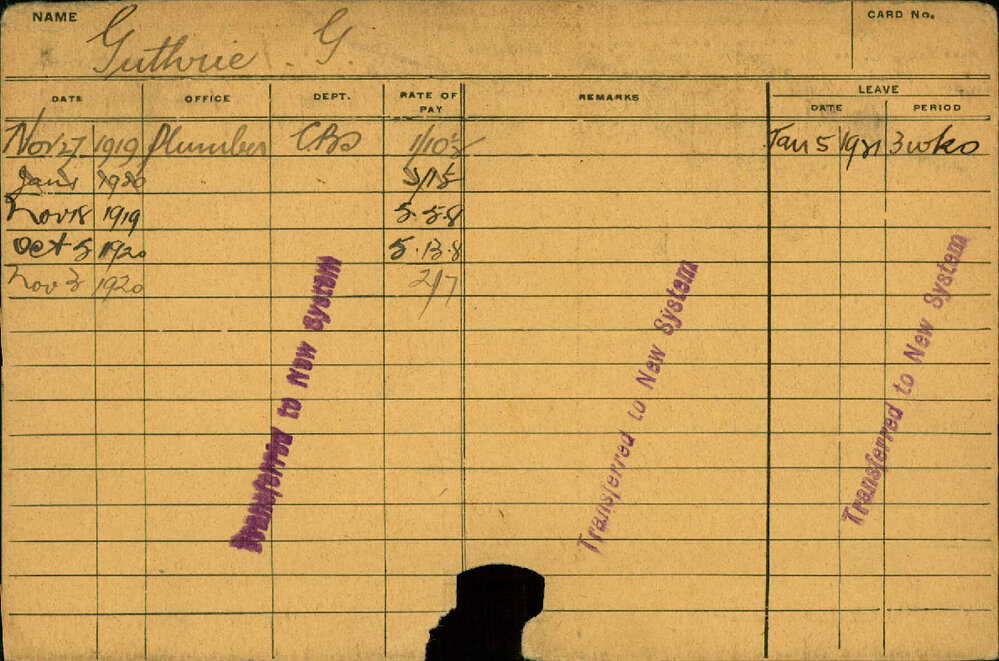 NAME Guthrie. G. CARD No.
DATE OFFICE DEPT. RATE OF PAY REMARKS LEAVE
DATE PERIOD
Nov 27 1919 Plumber 1/10½ Jan 5 1921 3 wks
Jan 1 1920
Nov 18 1919 5.5.8
Oct 5 1920 5.13.8
Nov 3 1920 2/7
Transferred to New System
Transferred to New System
Transferred to New System